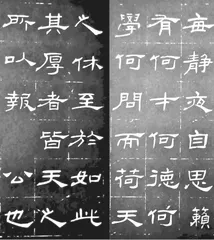 每靜夜自思籟
有何才何德何
學何問而荷天
之休至於如此
其厚者皆天之
所以報公也